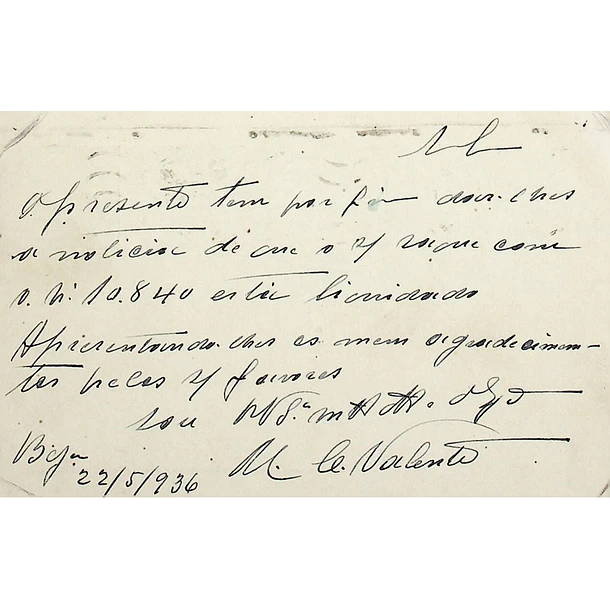 O presente tem por fim dar-lhes
a noticia de que o s/ saque com
o N.º 10.840 está liquidado
Apresentando-lhes os meus agradecimen-
tos pelos s/ favores
sou
Beja
22/5/936 M. C. Valente